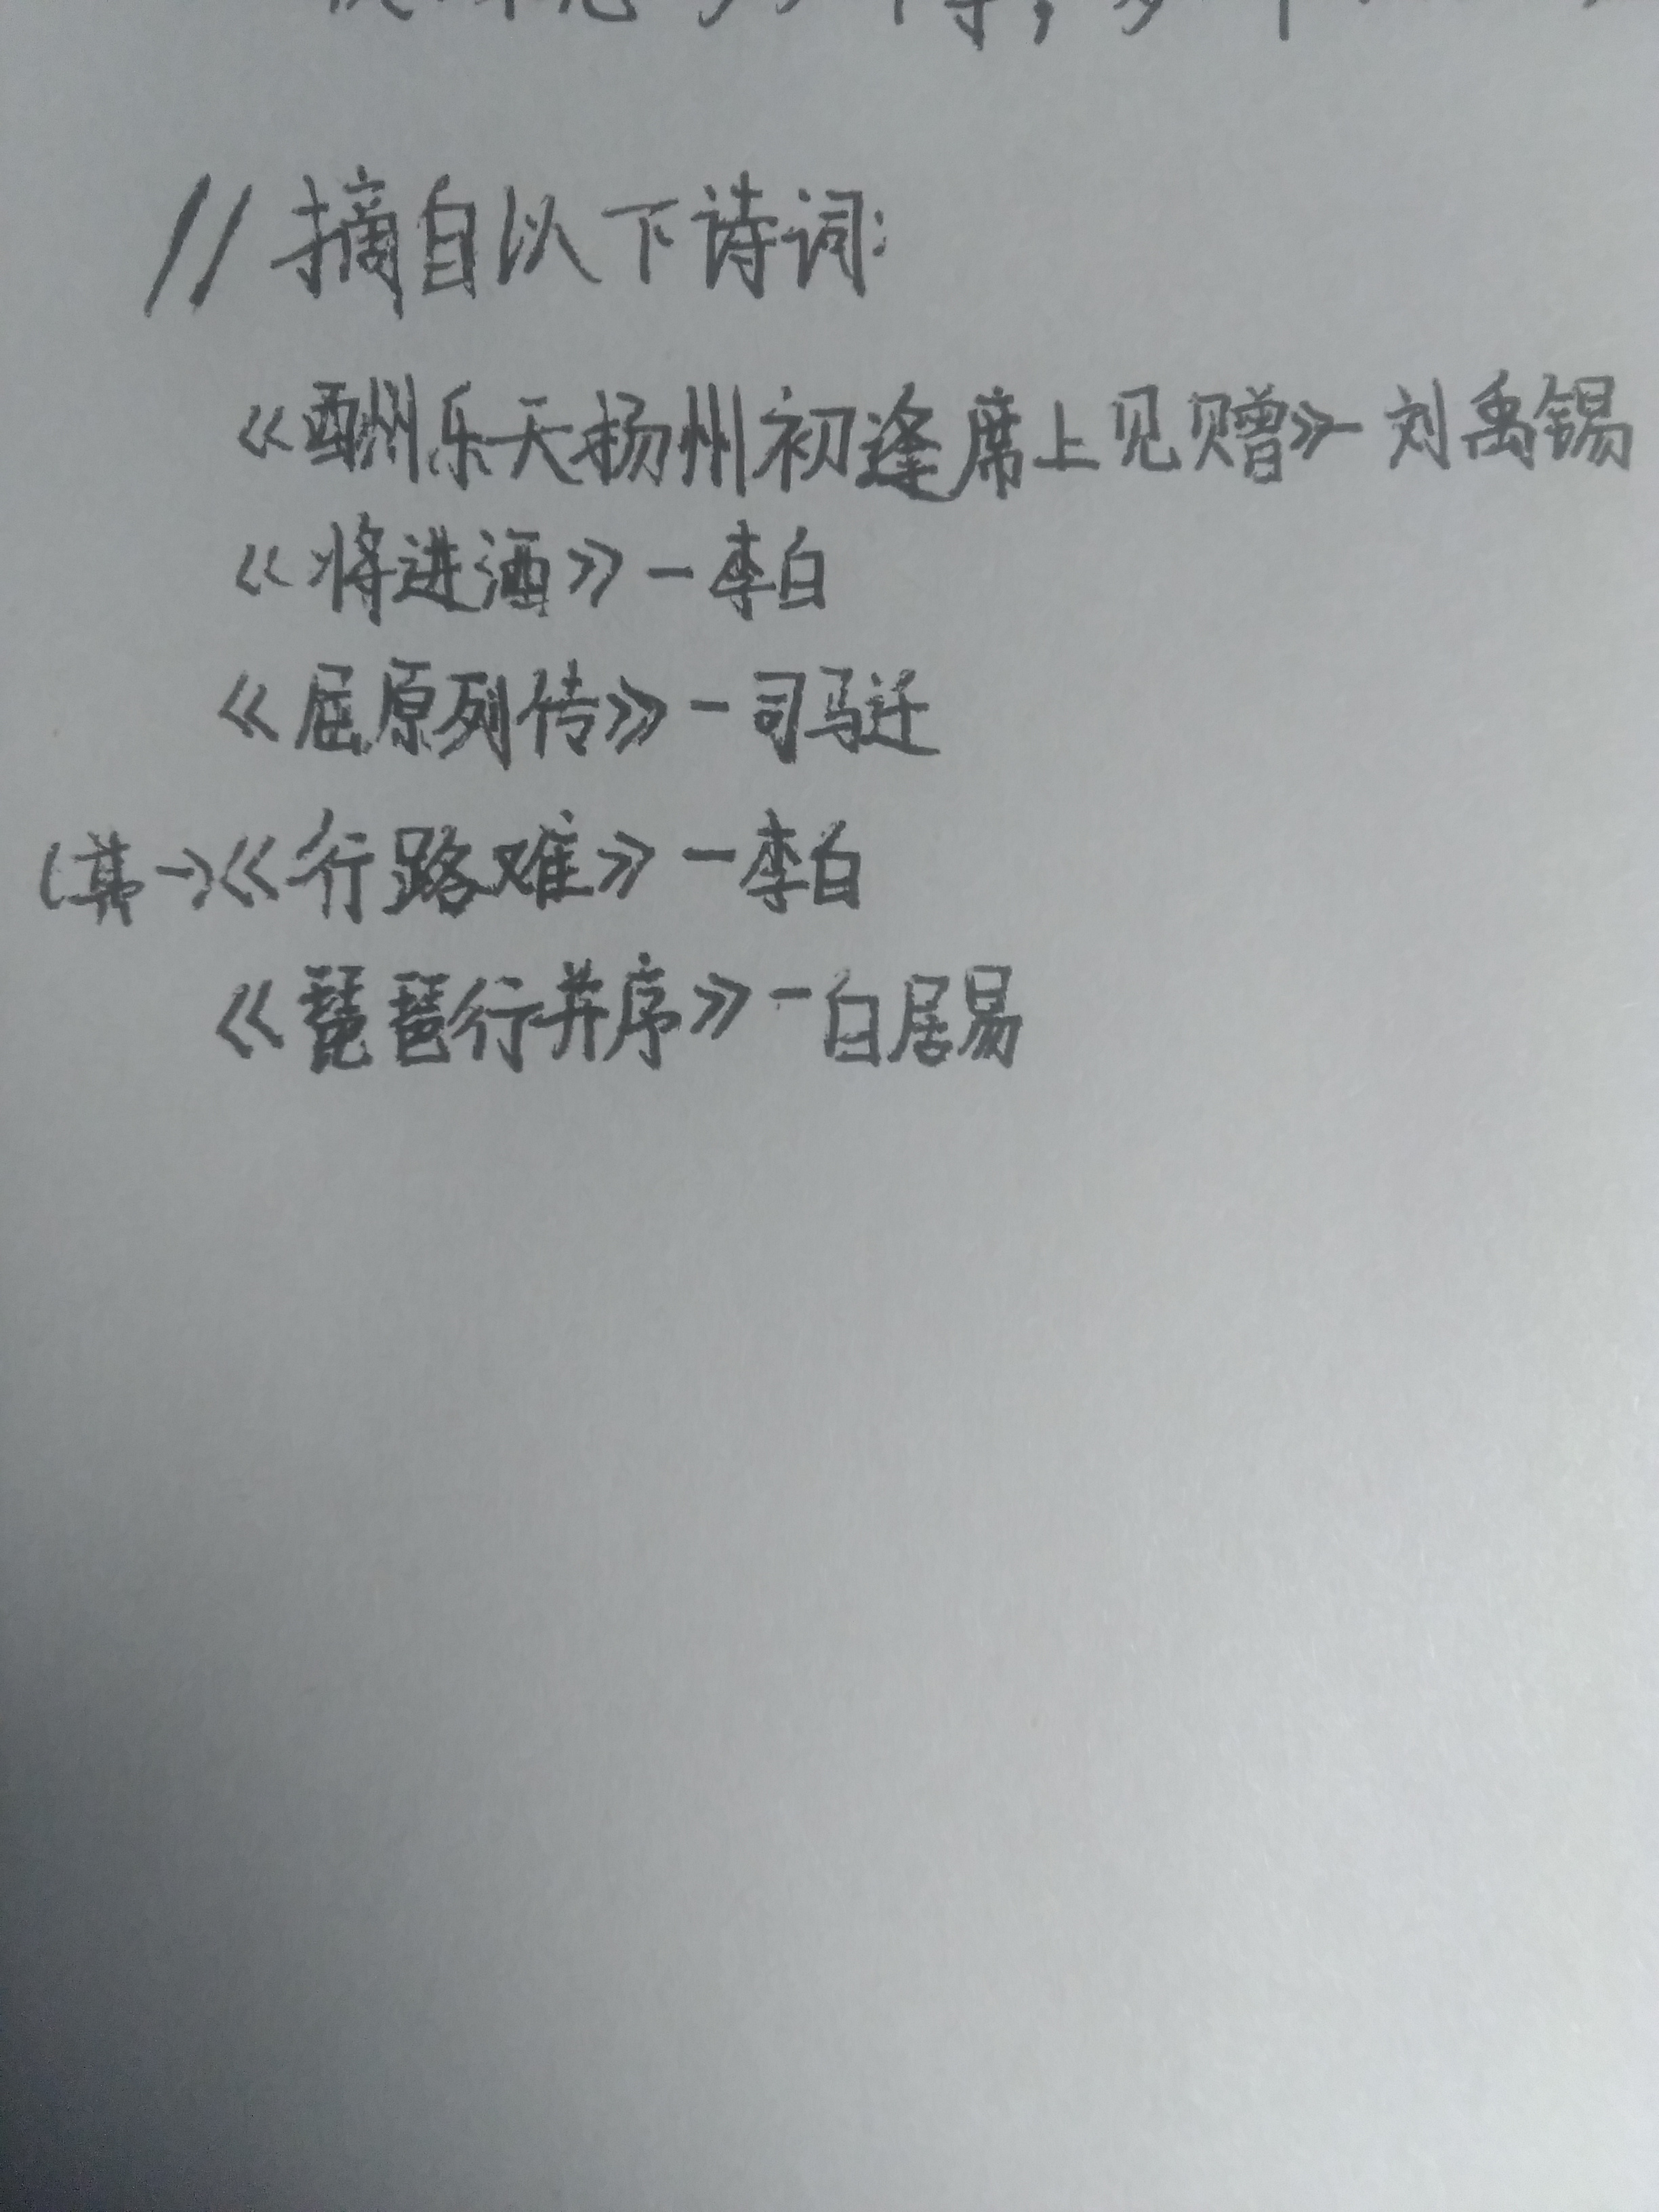 // 摘自以下诗词:
《酬州乐天扬州初逢席上见赠》-刘禹锡
《将进酒》-李白
《屈原列传》-司马迁
(其一)《行路难》-李白
《琵琶行并序》-白居易